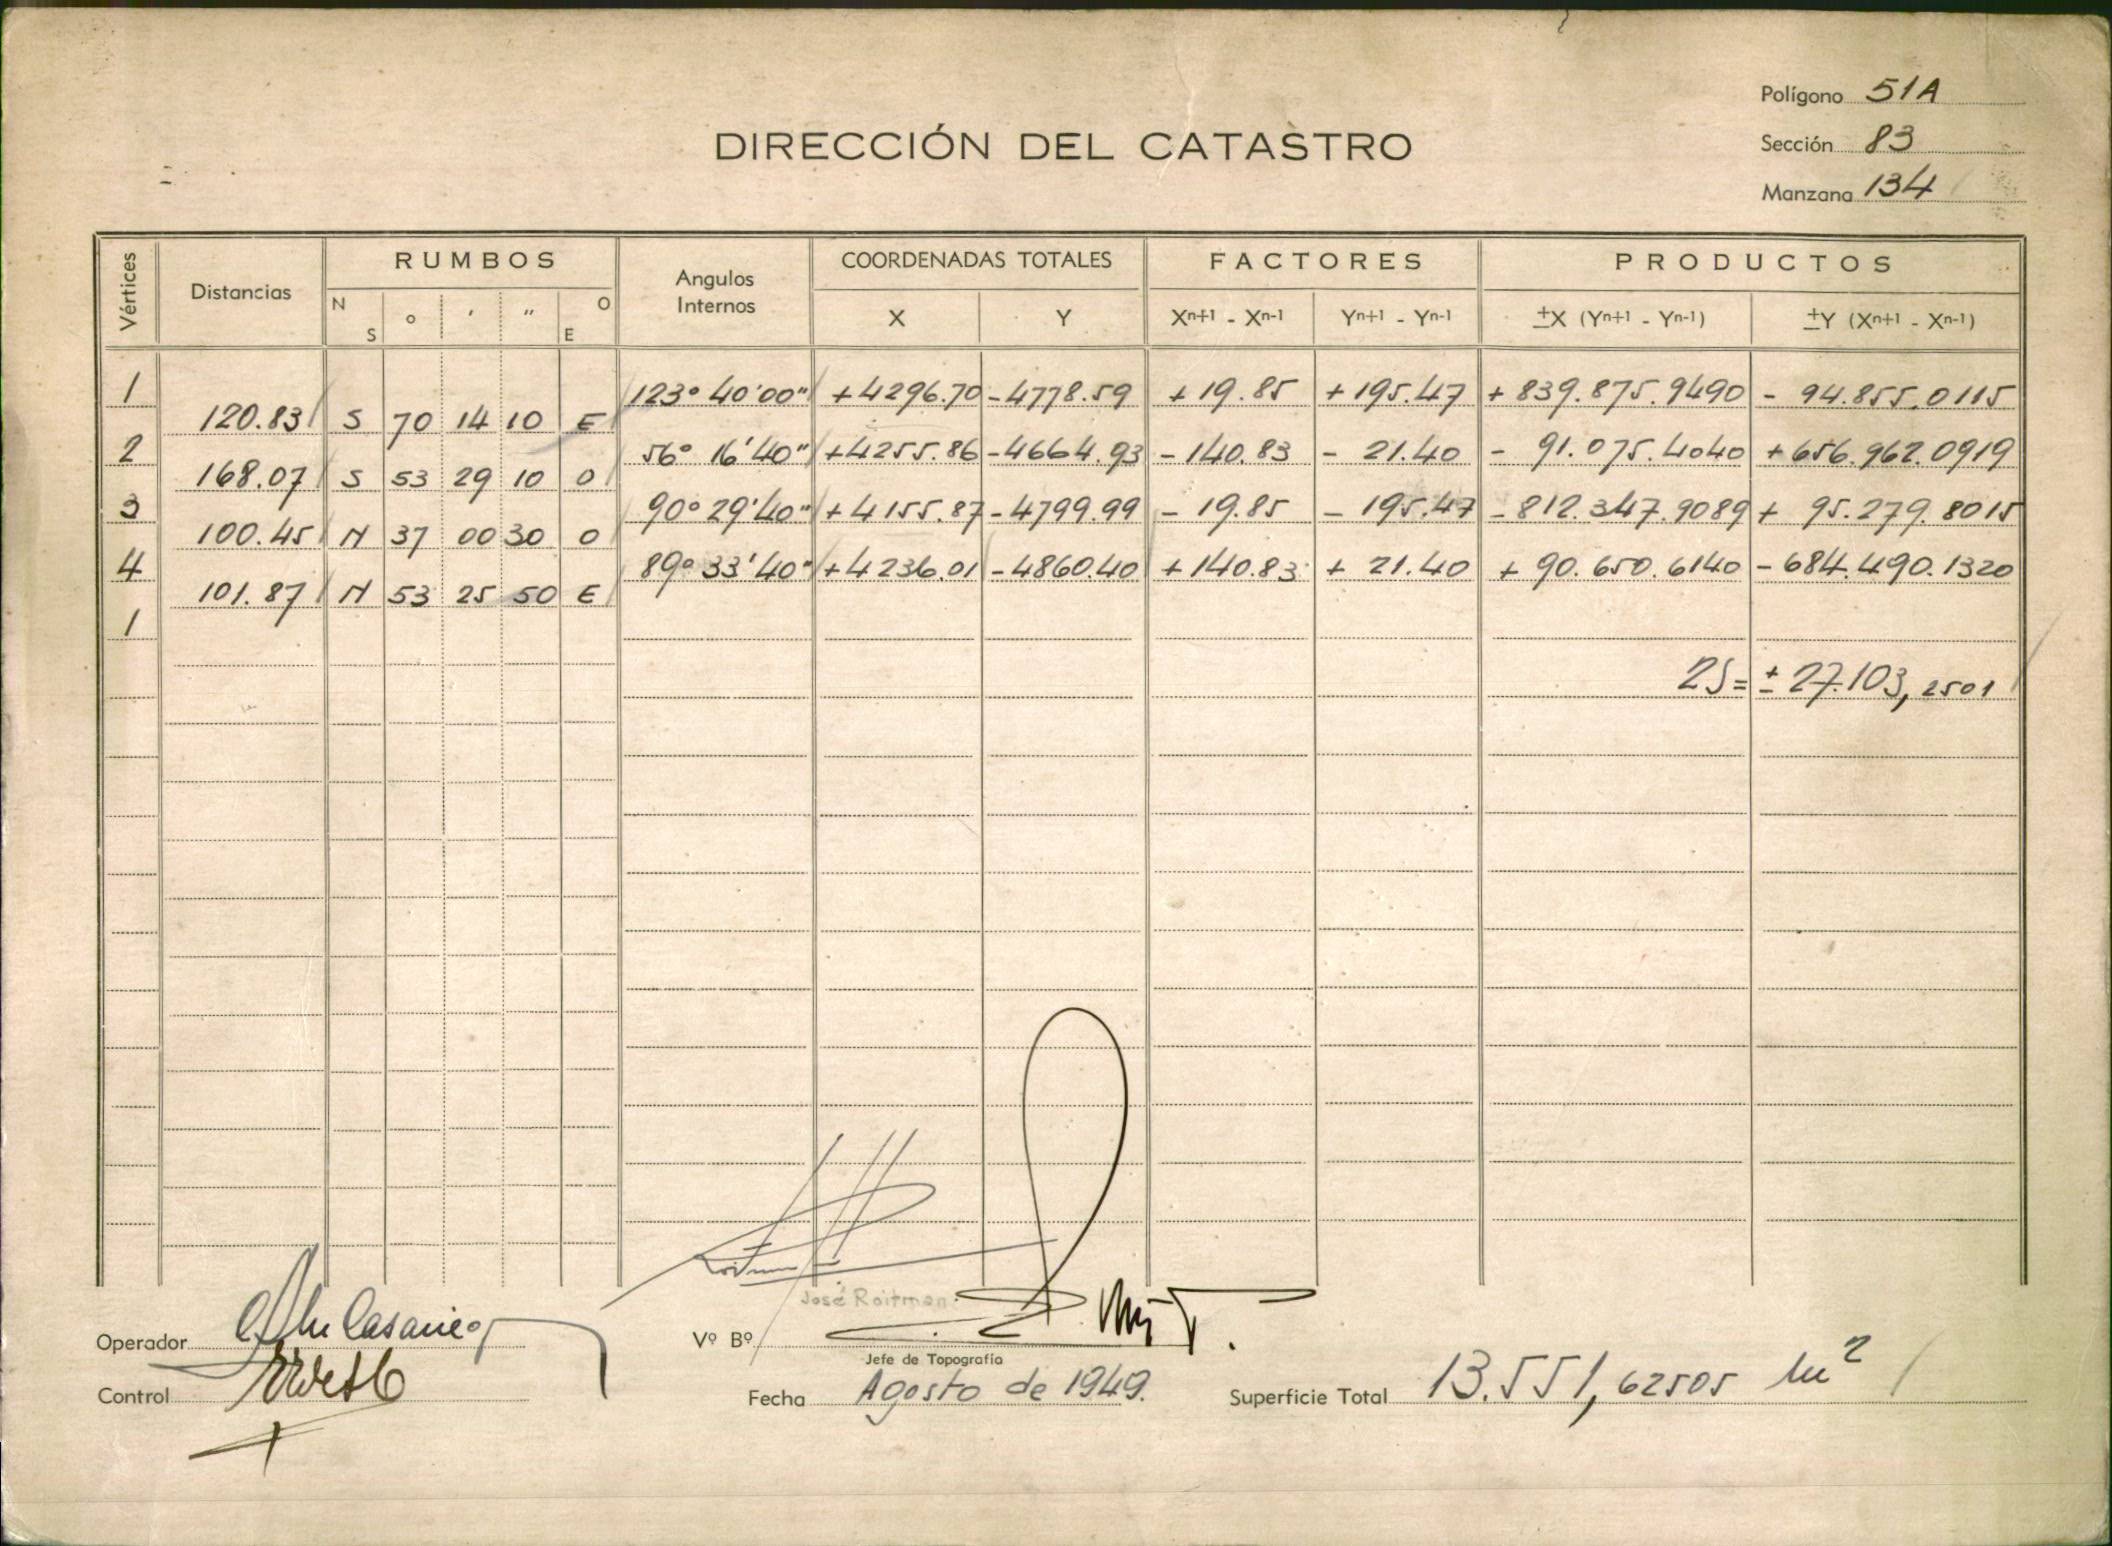 Polígono 51A
DIRECCIÓN DEL CATASTRO
Sección 83
Manzana 134
Vértices Distancias RUMBOS Angulos Internos COORDENADAS TOTALES FACTORES PRODUCTOS
N S ° ' " O E X Y Xn+1 - Xn-1 Yn+1 - Yn-1 ±X (Yn+1 - Yn-1) ±Y (Xn+1 - Xn-1)
1 123° 40' 00" +4296.70 -4778.59 +19.85 +195.47 +839.875.9490 - 94.855.0115
120.83 S 70 14 10 E
2 56° 16' 40" +4255.86 -4664.93 -140.83 - 21.40 - 91.075.4040 +656.962.0919
168.07 S 53 29 10 O
3 90° 29' 40" +4155.87 -4799.99 - 19.85 - 195.47 -812.347.9089 + 95.279.8015
100.45 N 37 00 30 O
4 89° 33' 40" +4236.01 -4860.40 +140.83 + 21.40 + 90.650.6140 -684.490.1320
101.87 N 53 25 50 E
1
2S= ± 27.103,2501
José Roitman
Operador
Vº Bº
Jefe de Topografía
Control
Fecha Agosto de 1949.
Superficie Total 13.551,62505 m²